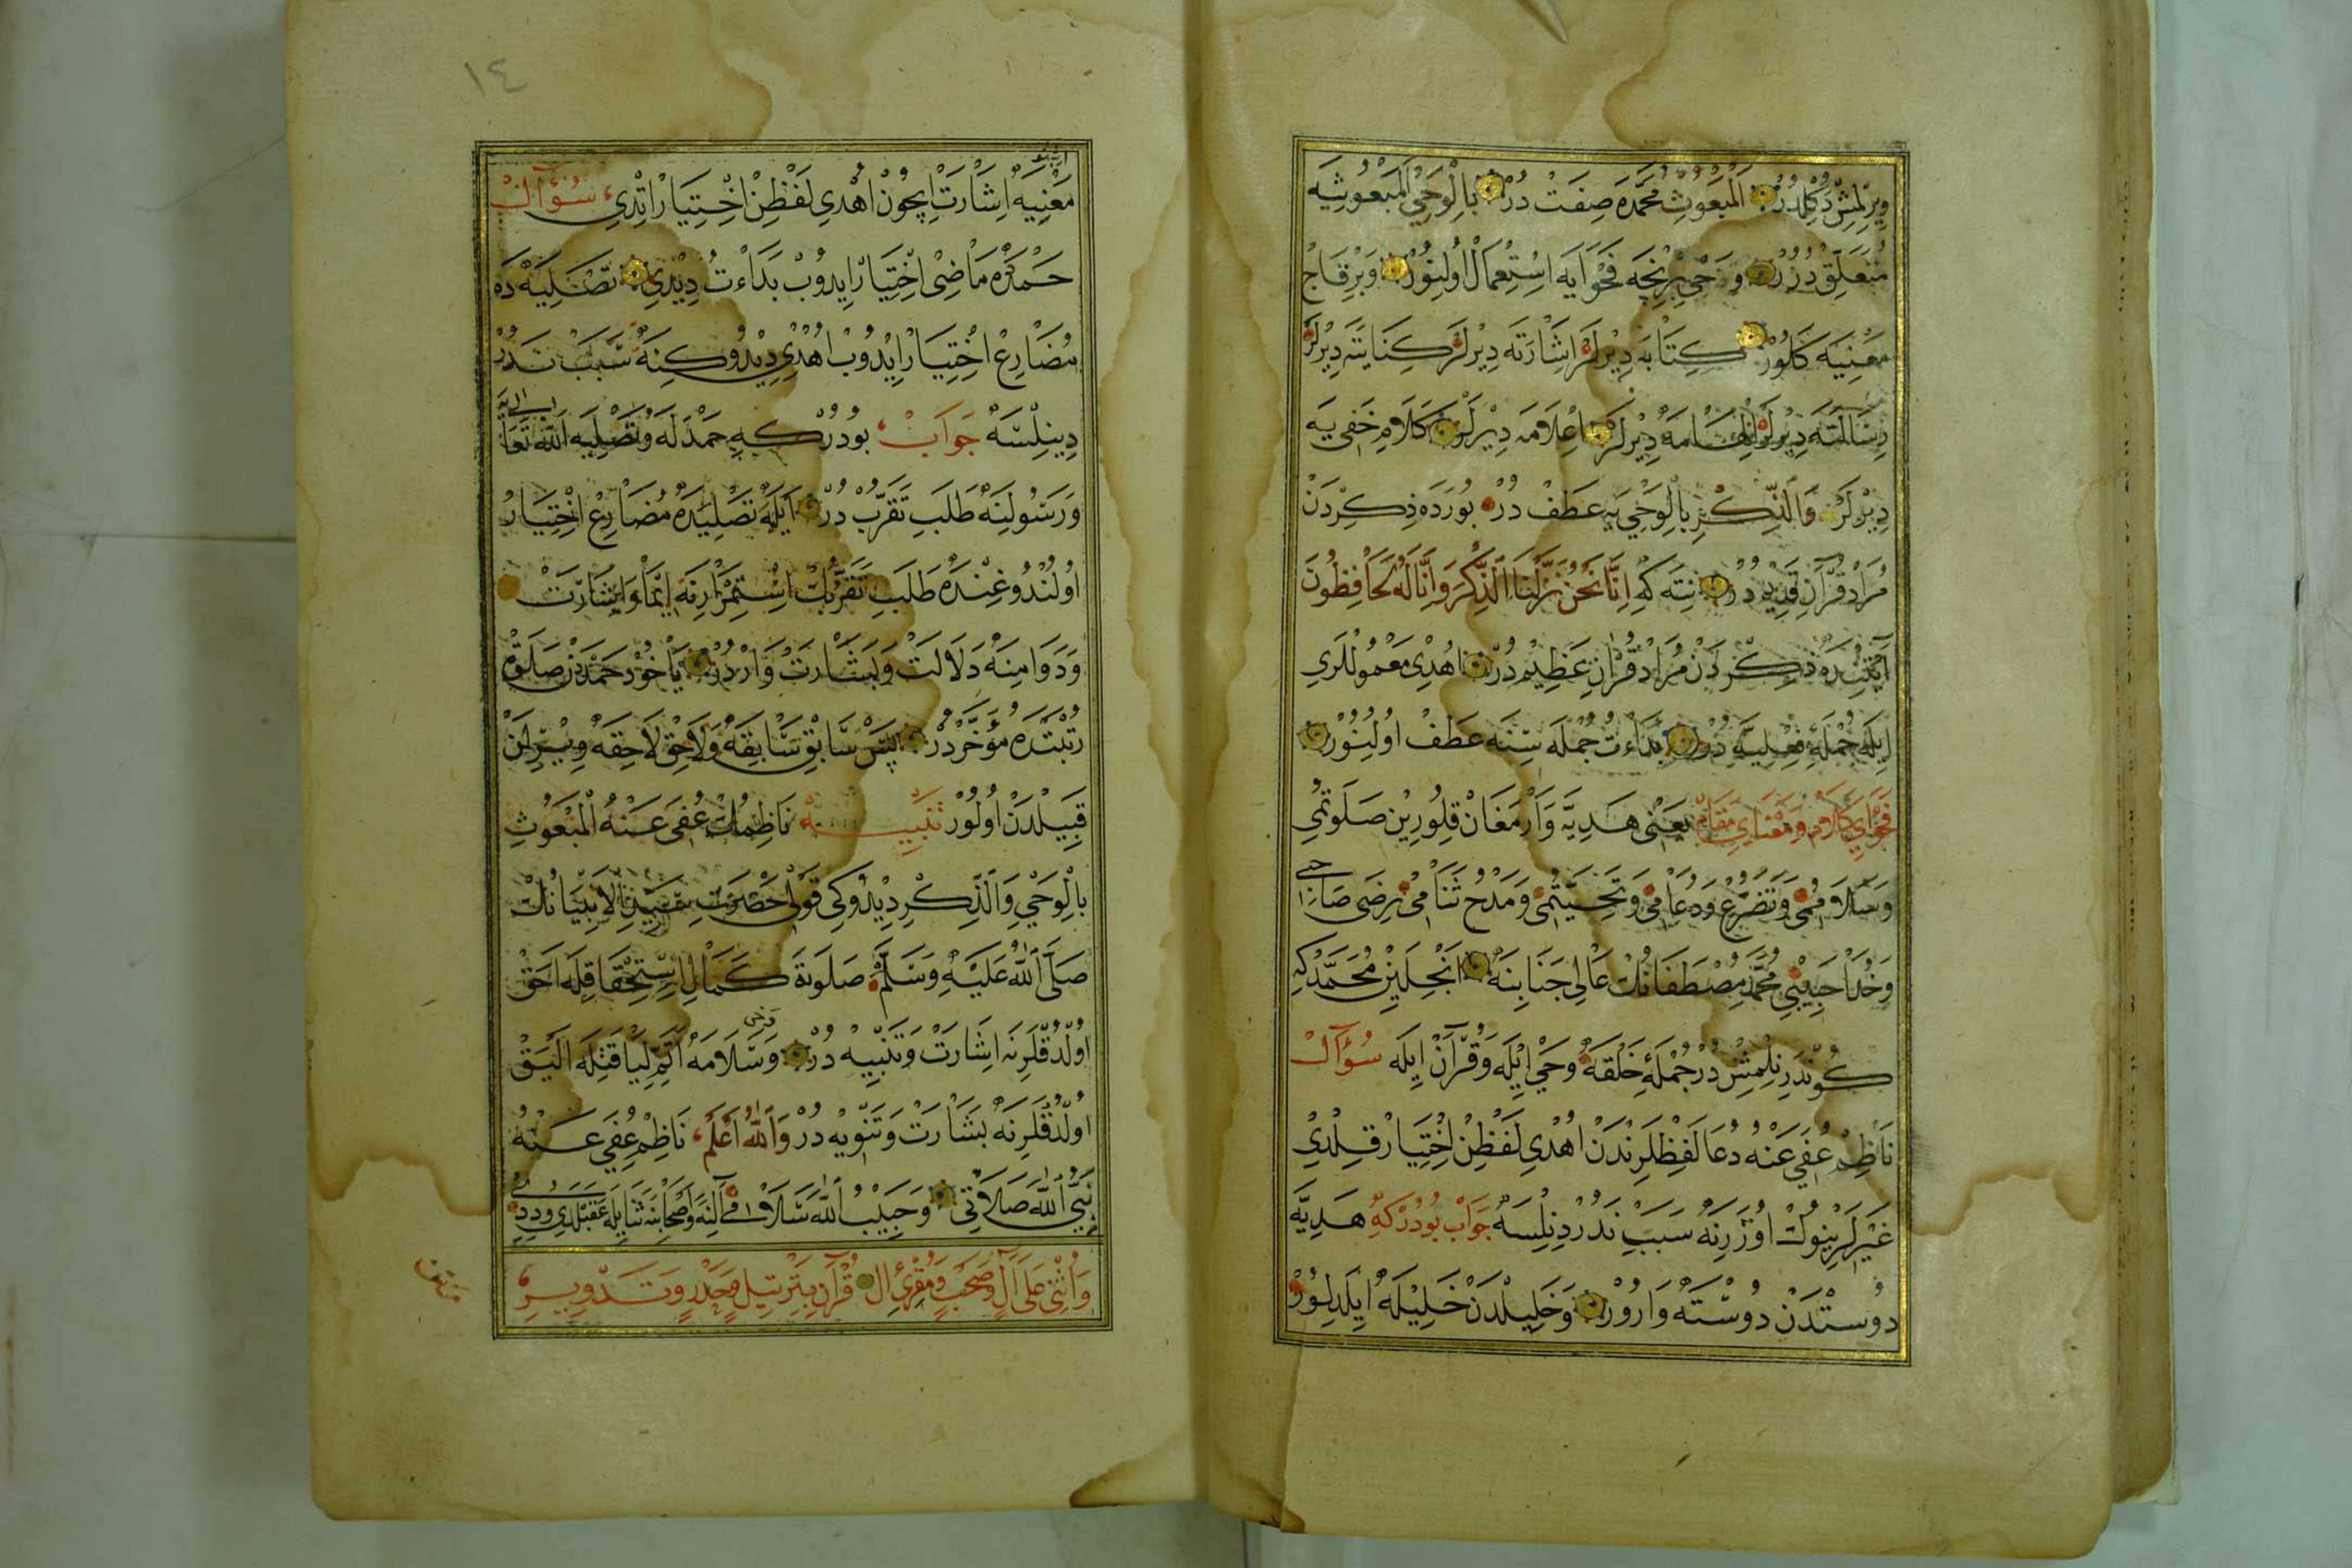 ويرلمش دكلدر اَلْمَبْعُوثِ محمّده صفت در بِالْوَحْيِ اَلْمَبعوثيه
متعلّق در و وحي برنجه فحوايه استعمال اولنور و برقاج
معنيه كلور كتابه ديرلر اشارته ديرلر كنايته ديرلر
رسالته ديرلر الهامه ديرلر اعلامه ديرلر كلام خفي يه
ديرلر وَالذِّكْرِ بِالْوَحْيِ يه عطف در بورده ذكردن
مراد قرآن قديم در نته كه اِنَّا نَحْنُ نَزَّلْنَا الذِّكْرَ وَاِنَّا لَهُ لَحَافِظُونَ
آيتنده ذكردن مراد قرآن عظيم در اهدى معموللرى
ايله جملهٔ فعليه در بدأت جمله سنه عطف اولنور
فحواي كلام و معناي مقام يعنى هديه و ارمغان قلورين صلوتمى
و سلاممى و تضرّع و دعامى و تحيّتمى و مدح ثنامى رضى صاحبى
و خدا حبيبى محمّد مصطفانك عالى جنابنه انجلين محمّد كه
كوندرلمش در جملهٔ خلقه وحي ايله و قرآن ايله سؤال
ناظم عفي عنه دعا لفظلرندن اهدى لفظن اختيار قلدى
غيرلرينوك اوزرنه سبب ندر دنلسه جواب بودر كه هديه
دوستدن دوسته وارور و خليلدن خليله ايلدلور
١٤
معنيه اشارت ايچون اهدى لفظن اختيار اتدى سؤال
حمدده ماضى اختيار ايدوب بدأت ديدى تصليه ده
مضارع اختيار ايدوب اهدى ديدوكنه سبب ندر
دينلسه جواب بودر كه حمدله و تصليه الله تعالى يه
و رسولنه طلب تقرّب در ايله تصليده مضارع اختيار
اولندوغنده طلب تقرّبك استمرارنه ايما و اشارت
و دوامنه دلالت و بشارت واردر ياخود حمددن صلوة
رتبتده مؤخّردر پس سابق سابقه و لاحق لاحقه ويرلن
قبيلدن اولور تنبيه ناظمك عفي عنه اَلْمَبْعُوثِ
بِالْوَحْيِ وَالذِّكْرِ ديدوكى قولى حضرت سيّد الانبيانك
صلّى الله عليه وسلّم صلوة كمال استحقاقله احقّ
اولدقلرنه اشارت و تنبيه در و سلامه اتمّ لياقتله اليق
اولدقلرنه بشارت و تنويه در والله اعلم ناظم عفي عنه
نبيّ الله صلاتى و حبيب الله سلامى آلنه و اصحابنه ثنايله عقبلدى و ديدى
وَاُثْنِي عَلَى آلٍ وَصَحْبٍ وَمُقْرِئِ الْ قُرْآنِ بِتَرْتِيلٍ وَحَدْرٍ وَتَدْوِيرِ